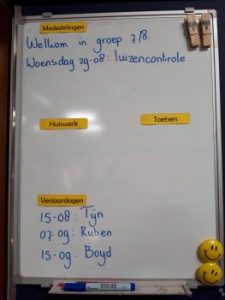 Mededelingen
Welkom in groep 7/8.
Woensdag 29-08: luizencontrole
Huiswerk
Toetsen
Verjaardagen
15-08: Tyn
07-09: Ruben
15-09: Boyd